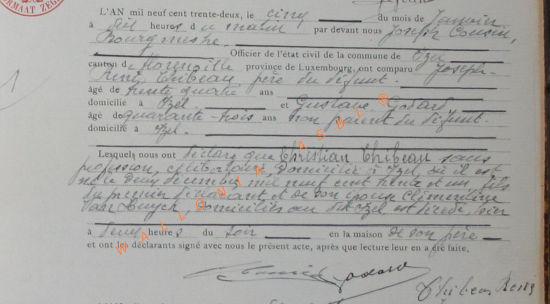 L'AN mil neuf cent trente-deux, le cinq du mois de Janvier
à dix heures du matin par devant nous Joseph Cousin,
Bourgmestre Officier de l'état civil de la commune de Izel
canton d province de Luxembourg, ont comparu Joseph-
René Thibeau, père du défunt
âgé de trente quatre ans
domicilié à Izel et Gustave Godard
âgé de quarante-trois ans non parent du défunt
domicilié à Izel.
Lesquels nous ont déclaré que Christian Thibeau sans
profession, célibataire, domicilié à Izel, où il est
né le deux décembre mil neuf cent trente et un, fils
du premier déclarant et de son épouse Clémentine
Van domiciliés au dit Izel est décédé, hier
à heures du soir en la maison de son père
et ont les déclarants signé avec nous le présent acte, après que lecture leur en a été faite.
Godard
Thibeau René
WALLONIA ASBL
1